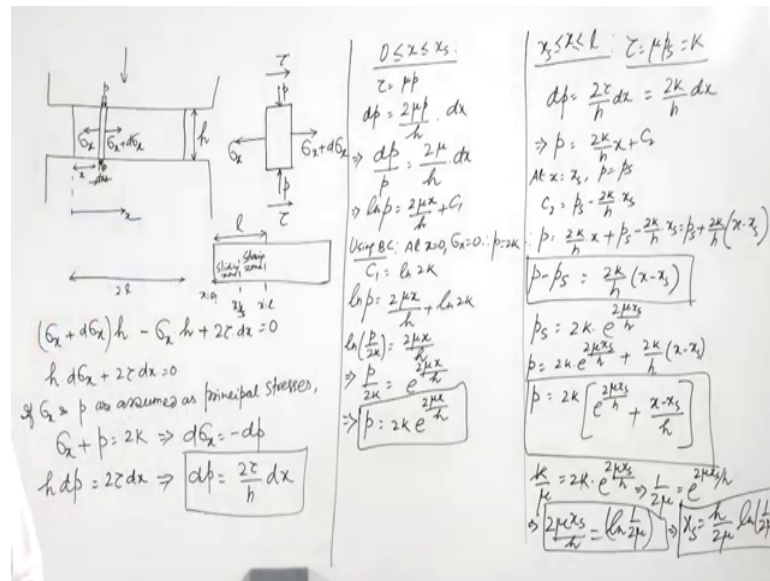 τ
p
p
h
σx
σx+dσx
σx
σx+dσx
x
dx
p
p
τ
x
l
2l
sliding zone
x=0
xs
x=l
(σx + dσx)h - σx h + 2τ.dx = 0
h dσx + 2τ dx = 0
If σx & p are assumed as principal stresses,
σx + p = 2k ⇒ dσx = -dp
h dp = 2τ dx ⇒ dp = 2τ/h dx
0 ≤ x ≤ xs:
τ = μp
dp = 2μp/h . dx
⇒ dp/p = 2μ/h . dx
⇒ ln p = 2μx/h + C1
Using BC: At x=0, σx=0 ∴ p=2k
C1 = ln 2k
ln p = 2μx/h + ln 2k
ln(p/2k) = 2μx/h
⇒ p/2k = e^(2μx/h)
⇒ p = 2k e^(2μx/h)
xs ≤ x ≤ l: τ = μps = k
dp = 2τ/h dx = 2k/h dx
⇒ p = 2k/h x + C2
At x = xs, p = ps
C2 = ps - 2k/h . xs
∴ p = 2k/h x + ps - 2k/h xs = ps + 2k/h (x-xs)
p - ps = 2k/h (x-xs)
ps = 2k . e^(2μxs/h)
p = 2k . e^(2μxs/h) + 2k/h (x-xs)
p = 2k [e^(2μxs/h) + (x-xs)/h]
k/μ = 2k . e^(2μxs/h) ⇒ 1/2μ = e^(2μxs/h)
⇒ 2μxs/h = (ln 1/2μ) ⇒ xs = h/2μ ln(1/2μ